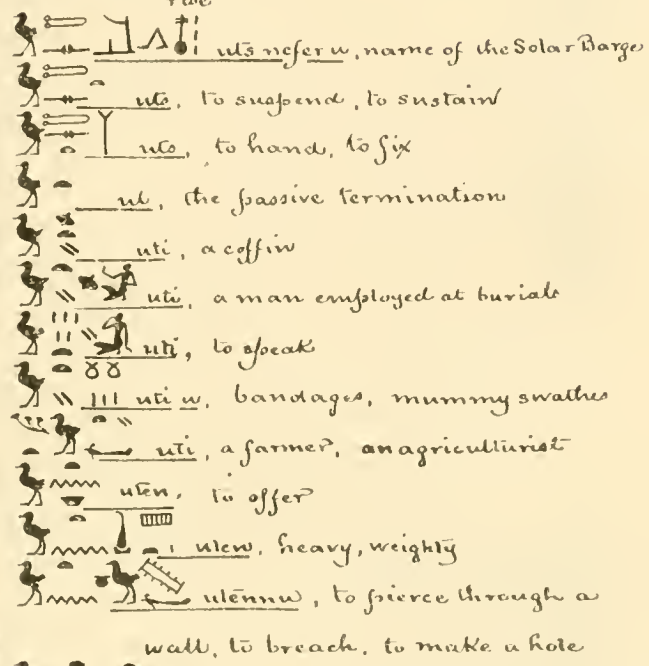 uts nefer w, name of the Solar Barge
uts, to suspend, to sustain
uts, to hand, to fix
ut, the passive termination
uti, a coffin
uti, a man employed at burials
uti, to speak
uti w, bandages, mummy swathes
uti, a farmer, an agriculturist
uten, to offer
uten, heavy, weighty
utennu, to pierce through a
wall, to breach, to make a hole